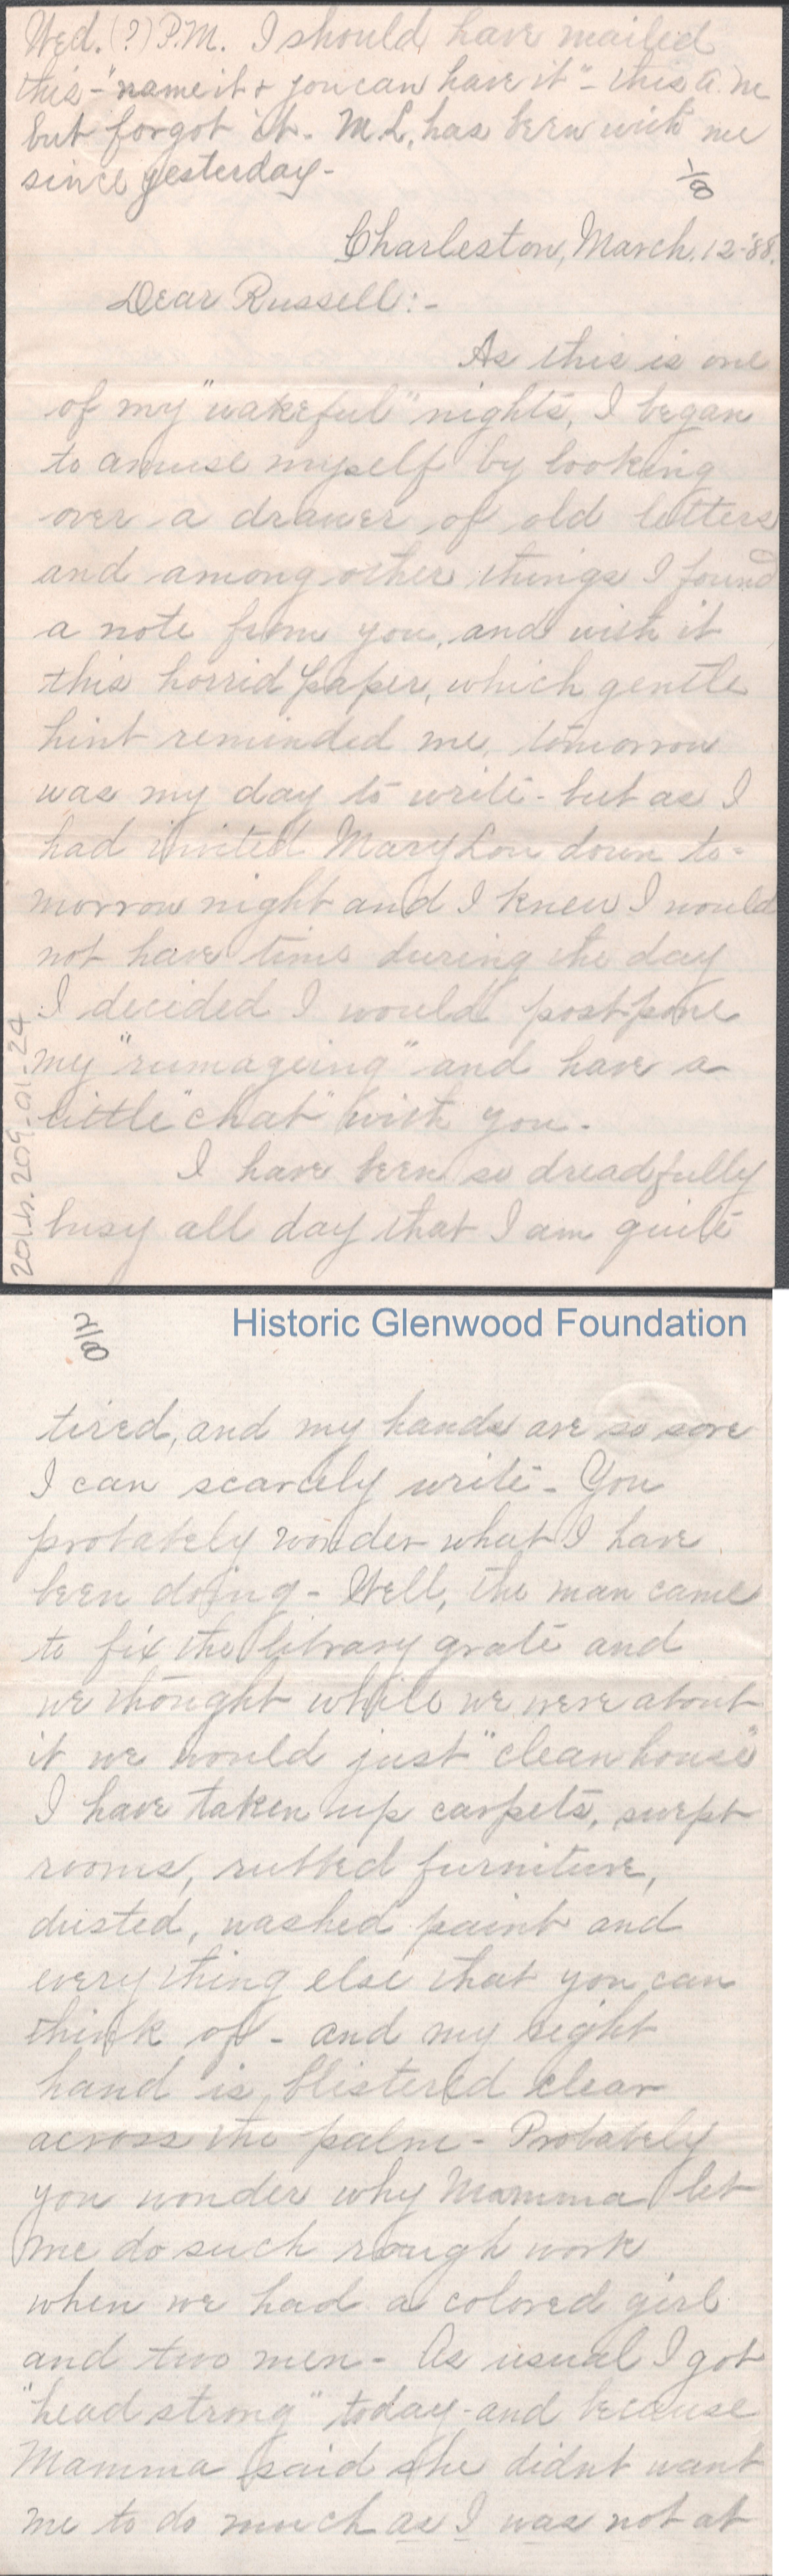 Wed. (?) P.M. I should have mailed
this - "name it & you can have it" - this a.m
but forgot it. M.L. has been with me
since yesterday -
1/8
Charleston, March. 12-'88.
Dear Russell:-
As this is one
of my "wakeful" nights, I began
to amuse myself by looking
over a drawer of old letters
and among other things I found
a note from you, and with it
this horrid paper, which gentle
hint reminded me, tomorrow
was my day to write - but as I
had invited Mary Lou down to-
morrow night and I knew I would
not have time during the day
I decided I would postpone
my "rumageing" and have a
little "chat" with you.
I have been so dreadfully
busy all day that I am quite
2014.209.01.24
2/8
Historic Glenwood Foundation
tired, and my hands are so sore
I can scarcely write - You
probably wonder what I have
been doing - Well, the man came
to fix the library grate and
we thought while we were about
it we would just "clean house"
I have taken up carpets, swept
rooms, rubbed furniture,
dusted, washed paint and
everything else that you can
think of - and my right
hand is blistered clear
across the palm - Probably
you wonder why Mamma let
me do such rough work
when we had a colored girl
and two men - As usual I got
"head strong" today - and because
Mamma said she didnt want
me to do much as I was not at